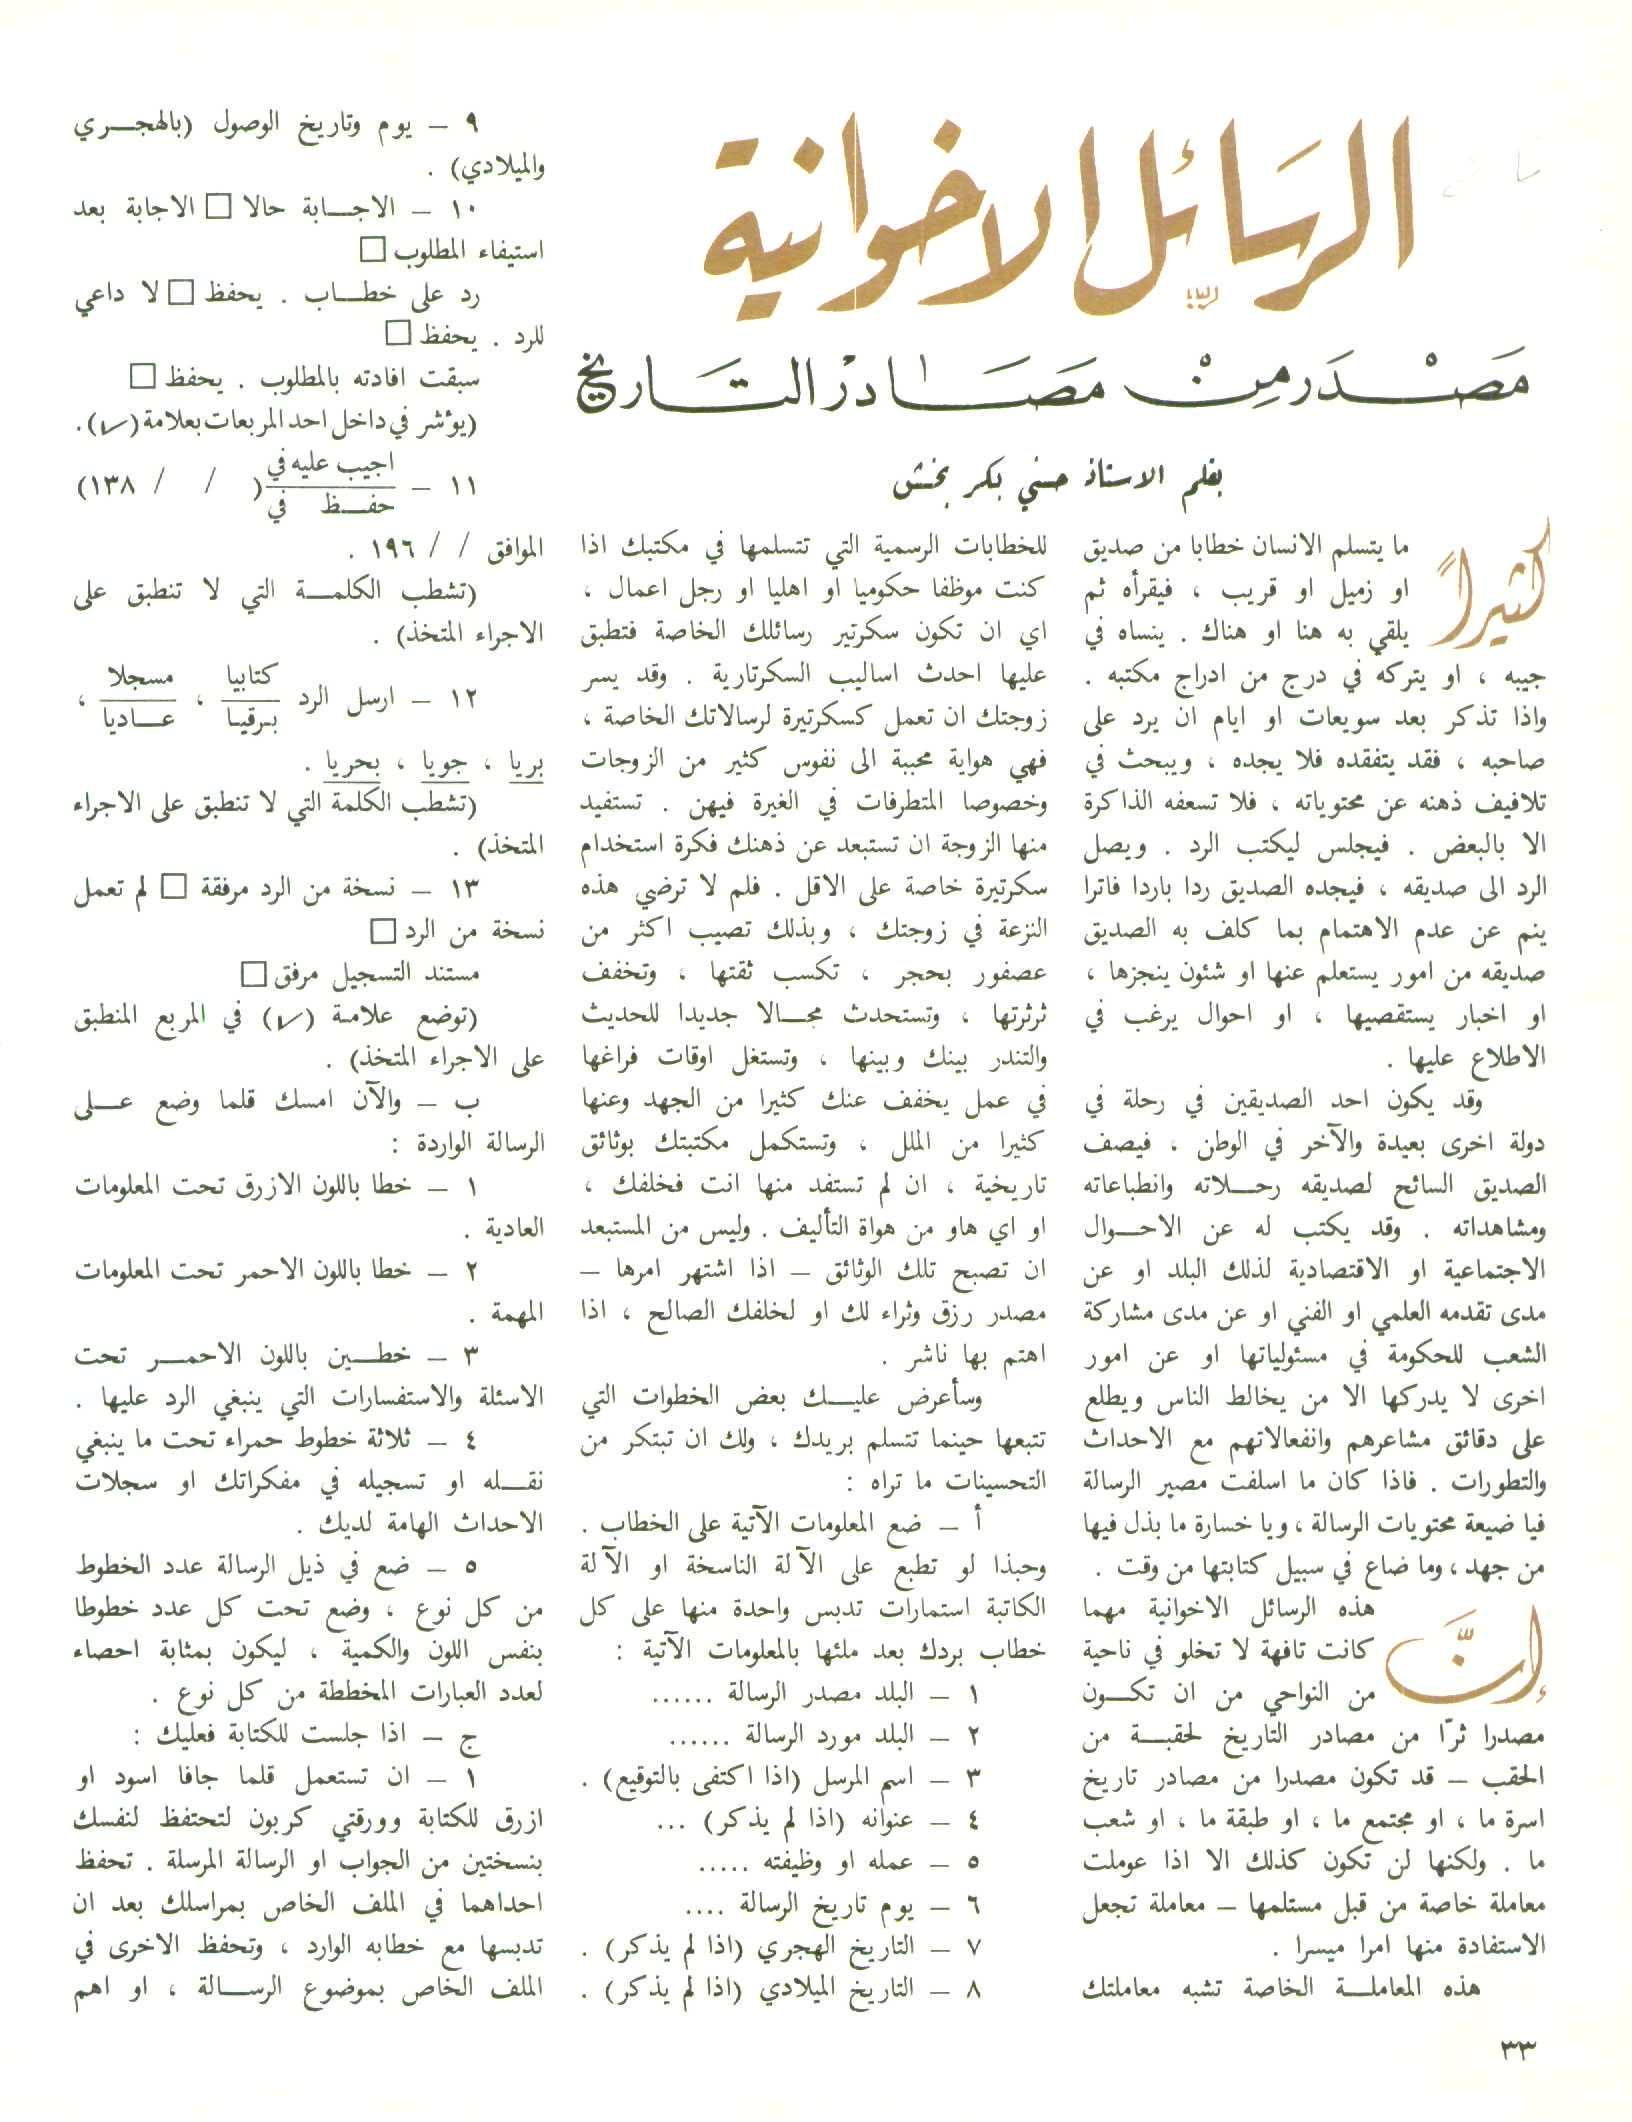 الرسائل الاخوانية
مَصْدَر مِنْ مَصَادرْ التَاريخ
بقلم الاستاذ حسني بكر بخش
كثيراً ما يتسلم الانسان خطابا من صديق
او زميل او قريب ، فيقرأه ثم
يلقي به هنا او هناك . ينساه في
جيبه ، او يتركه في درج من ادراج مكتبه .
واذا تذكر بعد سويعات او ايام ان يرد على
صاحبه ، فقد يتفقده فلا يجده ، ويبحث في
تلافيف ذهنه عن محتوياته ، فلا تسعفه الذاكرة
الا بالبعض . فيجلس ليكتب الرد . ويصل
الرد الى صديقه ، فيجده الصديق ردا باردا فاترا
ينم عن عدم الاهتمام بما كلف به الصديق
صديقه من امور يستعلم عنها او شئون ينجزها ،
او اخبار يستقصيها ، او احوال يرغب في
الاطلاع عليها .
وقد يكون احد الصديقين في رحلة في
دولة اخرى بعيدة والآخر في الوطن ، فيصف
الصديق السائح لصديقه رحـلاته وانطباعاته
ومشاهداته . وقد يكتب له عن الاحـوال
الاجتماعية او الاقتصادية لذلك البلد او عن
مدى تقدمه العلمي او الفني او عن مدى مشاركة
الشعب للحكومة في مسئولياتها او عن امور
اخرى لا يدركها الا من يخالط الناس ويطلع
على دقائق مشاعرهم وانفعالاتهم مع الاحداث
والتطورات . فاذا كان ما اسلفت مصير الرسالة
فيا ضيعة محتويات الرسالة ، ويا خسارة ما بذل فيها
من جهد ، وما ضاع في سبيل كتابتها من وقت .
إنَّ هذه الرسائل الاخوانية مهما
كانت تافهة لا تخلو في ناحية
من النواحي من ان تكـون
مصدرا ثرّا من مصادر التاريخ لحقبـة من
الحقب – قد تكون مصدرا من مصادر تاريخ
اسرة ما ، او مجتمع ما ، او طبقة ما ، او شعب
ما . ولكنها لن تكون كذلك الا اذا عوملت
معاملة خاصة من قبل مستلمها – معاملة تجعل
الاستفادة منها امرا ميسرا .
هذه المعاملـة الخاصة تشبه معاملتك
للخطابات الرسمية التي تتسلمها في مكتبك اذا
كنت موظفا حكوميا او اهليا او رجل اعمال ،
اي ان تكون سكرتير رسائلك الخاصة فتطبق
عليها احدث اساليب السكرتارية . وقد يسر
زوجتك ان تعمل كسكرتيرة لرسالاتك الخاصة ،
فهي هواية محببة الى نفوس كثير من الزوجات
وخصوصا المتطرفات في الغيرة فيهن . تستفيد
منها الزوجة ان تستبعد عن ذهنك فكرة استخدام
سكرتيرة خاصة على الاقل . فلم لا ترضي هذه
النزعة في زوجتك ، وبذلك تصيب اكثر من
عصفور بحجر ، تكسب ثقتها ، وتخفف
ثرثرتها ، وتستحدث مجـالا جديدا للحديث
والتندر بينك وبينها ، وتستغل اوقات فراغها
في عمل يخفف عنك كثيرا من الجهد وعنها
كثيرا من الملل ، وتستكمل مكتبتك بوثائق
تاريخية ، ان لم تستفد منها انت فخلفك ،
او اي هاو من هواة التأليف . وليس من المستبعد
ان تصبح تلك الوثائق – اذا اشتهر امرها –
مصدر رزق وثراء لك او لخلفك الصالح ، اذا
اهتم بها ناشر .
وسأعرض عليـك بعض الخطوات التي
تتبعها حينما تتسلم بريدك ، ولك ان تبتكر من
التحسينات ما تراه :
أ – ضع المعلومات الآتية على الخطاب .
وحبذا لو تطبع على الآلة الناسخة او الآلة
الكاتبة استمارات تدبس واحدة منها على كل
خطاب بردك بعد ملئها بالمعلومات الآتية :
١ – البلد مصدر الرسالة ......
٢ – البلد مورد الرسالة ......
٣ – اسم المرسل (اذا اكتفى بالتوقيع) .
٤ – عنوانه (اذا لم يذكر) ...
٥ – عمله او وظيفته .....
٦ – يوم تاريخ الرسالة ....
٧ – التاريخ الهجري (اذا لم يذكر) .
٨ – التاريخ الميلادي (اذا لم يذكر) .
٩ – يوم وتاريخ الوصول (بالهجـري
والميلادي) .
١٠ – الاجـابة حالا □ الاجابة بعد
استيفاء المطلوب □
رد على خطـاب . يحفظ □ لا داعي
للرد . يحفظ □
سبقت افادته بالمطلوب . يحفظ □
(يؤشر في داخل احد المربعات بعلامة (✓) .
١١ – اجيب عليه في
حفـظ في ( / / ١٣٨)
الموافق / / ١٩٦ .
(تشطب الكلمـة التي لا تنطبق على
الاجراء المتخذ) .
١٢ – ارسل الرد كتابيا ، مسجلا ،
برقيـا عـاديا
بريا ، جويا ، بحريا .
(تشطب الكلمة التي لا تنطبق على الاجراء
المتخذ) .
١٣ – نسخة من الرد مرفقة □ لم تعمل
نسخة من الرد □
مستند التسجيل مرفق □
(توضع علامة (✓) في المربع المنطبق
على الاجراء المتخذ) .
ب – والآن امسك قلما وضع عـلى
الرسالة الواردة :
١ – خطا باللون الازرق تحت المعلومات
العادية .
٢ – خطا باللون الاحمر تحت المعلومات
المهمة .
٣ – خطـين باللون الاحمـر تحت
الاسئلة والاستفسارات التي ينبغي الرد عليها .
٤ – ثلاثة خطوط حمراء تحت ما ينبغي
نقـله او تسجيله في مفكراتك او سجلات
الاحداث الهامة لديك .
٥ – ضع في ذيل الرسالة عدد الخطوط
من كل نوع ، وضع تحت كل عدد خطوطا
بنفس اللون والكمية ، ليكون بمثابة احصاء
لعدد العبارات المخططة من كل نوع .
ج – اذا جلست للكتابة فعليك :
١ – ان تستعمل قلما جافا اسود او
ازرق للكتابة وورقتي كربون لتحتفظ لنفسك
بنسختين من الجواب او الرسالة المرسلة . تحفظ
احداهما في الملف الخاص بمراسلك بعد ان
تدبسها مع خطابه الوارد ، وتحفظ الاخرى في
الملف الخاص بموضوع الرسـالة ، او اهم
٣٣